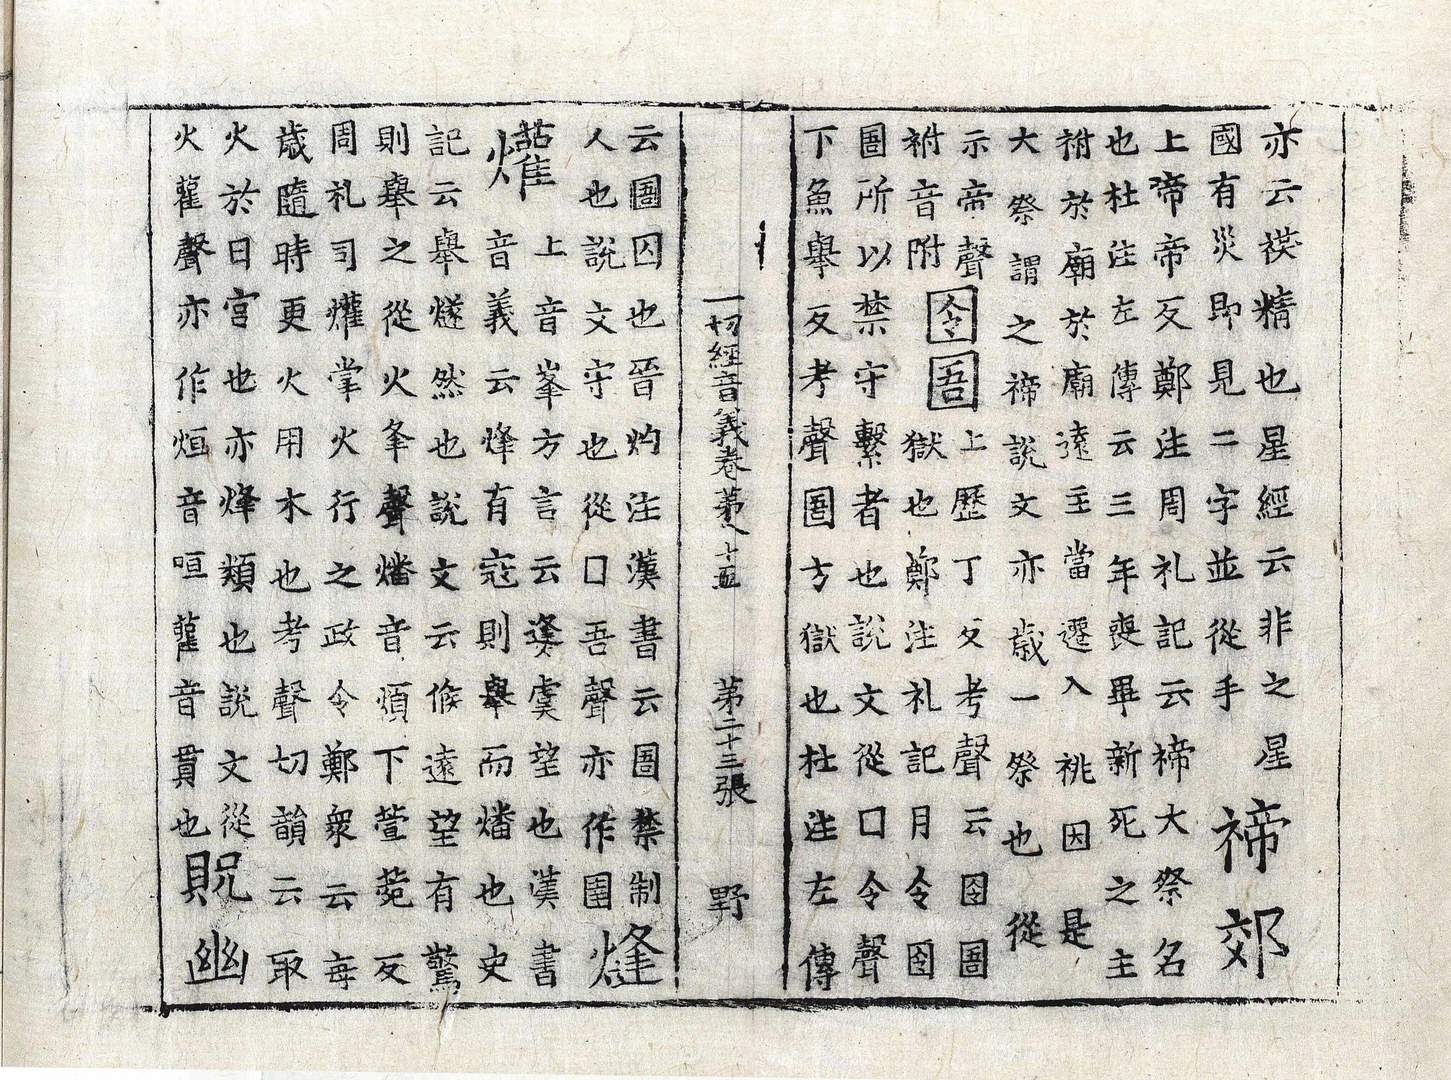 亦云祲精也星經云非之星
國有災即見二字並從手禘郊
上帝帝反鄭注周礼記云禘大祭名
也杜注左傳云三年喪畢新死之主
祔於廟於廟遠主當遷入祧因是
大祭謂之禘說文亦歲一祭也從
示帝聲囹圄上歷丁反考聲云囹圄
祔音附獄也鄭注礼記月令囹
圄所以禁守繫者也說文從口令聲
下魚舉反考聲圄方獄也杜注左傳
一切經音義卷第八十五 第二十三張 野
云圄囚也晉灼注漢書云圄禁制
人也說文守也從口吾聲亦作圉㷭
爟上音峯方言云㷭虞望也漢書
音義云烽有寇則舉而燔也史
記云舉燧然也說文云候遠望有驚
則舉之從火夆聲燔音煩下萱菀反
周礼司爟掌火行之政令鄭衆云每
歲隨時更火用木也考聲切韻云取
火於日官也亦烽類也說文從
火雚聲亦作烜音咺雚音貫也貺幽